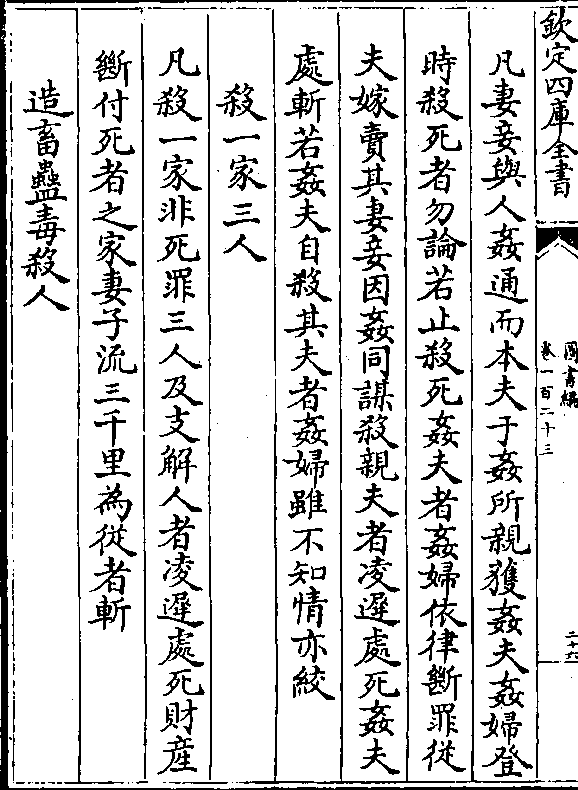 欽定四庫全書
圖書編
卷一百二十三
二十六
凡妻妾與人姦通而本夫于姦所親獲姦夫姦婦登
時殺死者勿論若止殺死姦夫者姦婦依律斷罪從
夫嫁賣其妻妾因姦同謀殺親夫者凌遲處死姦夫
處斬若姦夫自殺其夫者姦婦雖不知情亦絞
殺一家三人
凡殺一家非死罪三人及支解人者凌遲處死財産
斷付死者之家妻子流三千里為從者斬
造畜蠱毒殺人